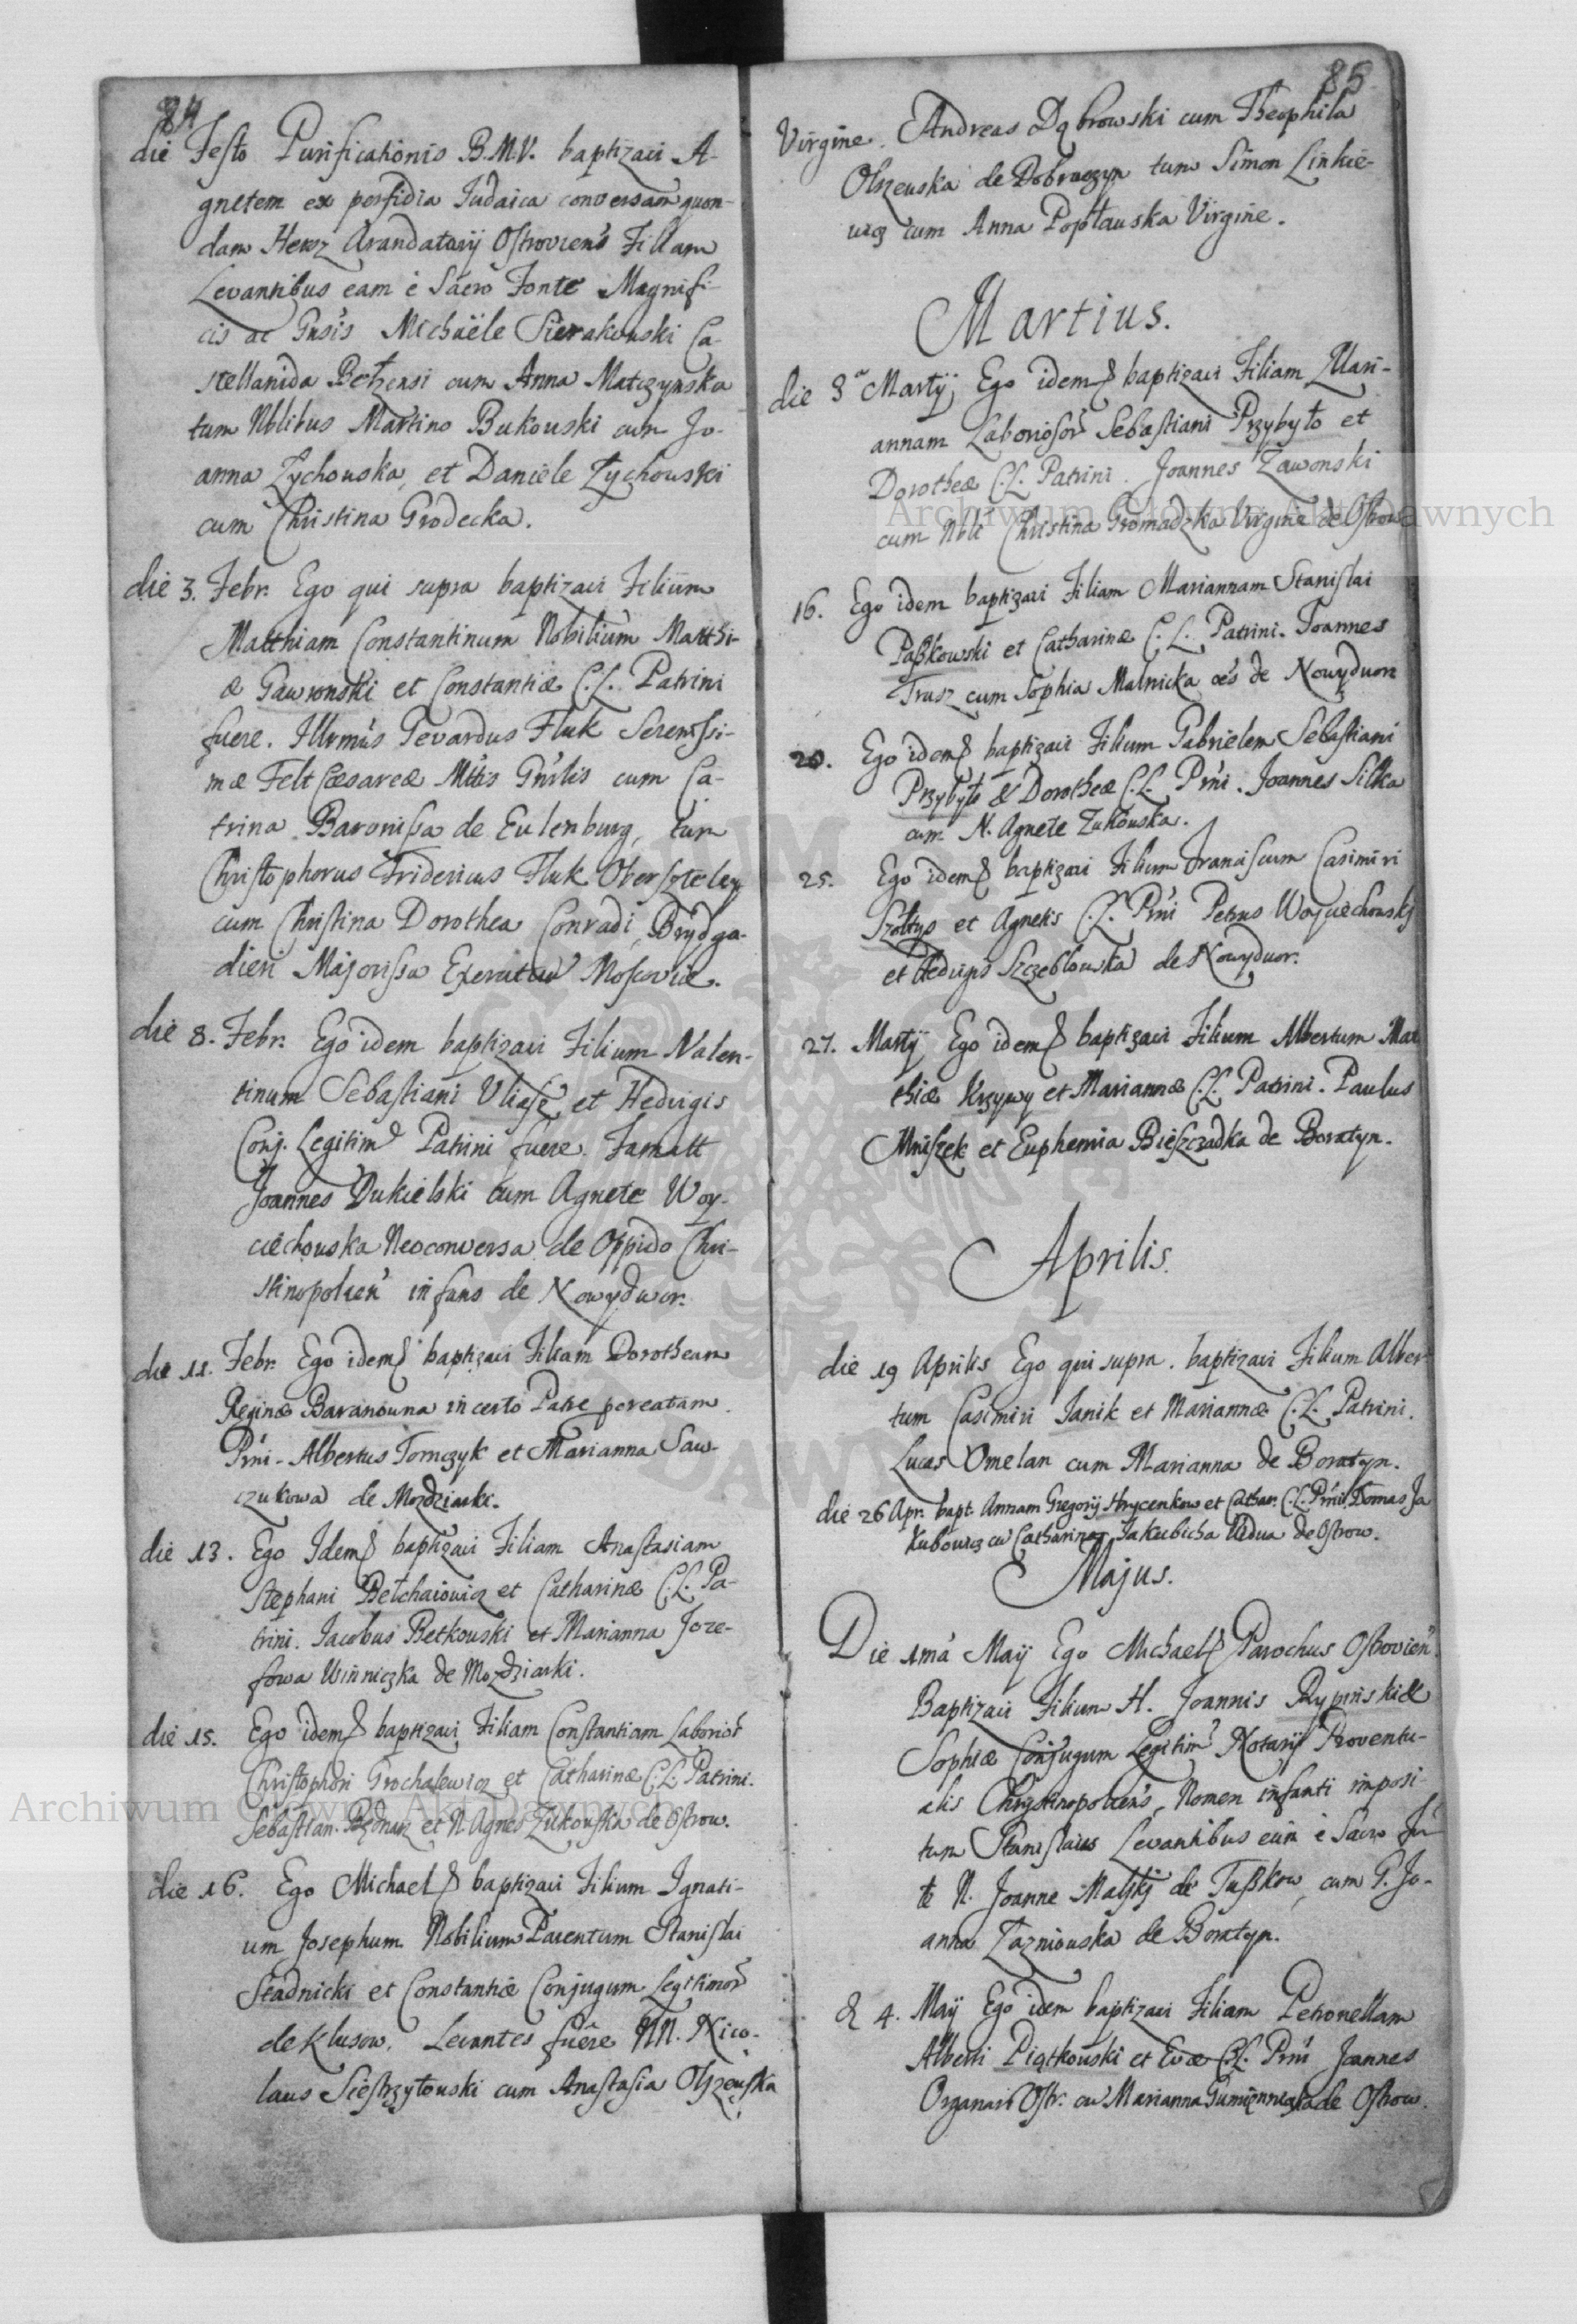 84
die Festo Purificationis B.M.V. baptizavi A-
gnetem ex perfidia Judaica conversam quon-
dam Hersz Arandatarij Ostroviens Filiam
Levantibus eam è Sacro Fonte Magnifi-
cis ac Gnsis Michaële Sierakouski Ca-
stellanida Bełzensi cum Anna Matczynska
tum Nblibus Martino Bukouski cum Jo-
anna Zychouska, et Daniele Zychouski
cum Christina Grodecka.
die 3. Febr. Ego qui supra baptizavi Filium
Matthiam Constantinum Nobilium Matthi-
æ Gawronski et Constantiæ C.L. Patrini
fuere. Illrmus Gevardus Fluk Serenissi-
mæ Felt Cæsareæ Mttis Gnrlis cum Ca-
trina Baronissa de Eulenburg, tum
Christophorus Fridericus Fluk Oberszteley
cum Christina Dorothea Conradi, Brydga-
dieri Majorissa Exercitus Moscoviæ.
die 8. Febr. Ego idem baptizavi Filium Valen-
tinum Sebastiani Uliasz et Hedvigis
Conj. Legitim Patrini fuere Famatt
Joannes Dukielski cum Agnete Woy-
ciechouska Neoconversa de Oppido Chri-
stinopolien infans de Nowydwor.
die 11. Febr. Ego idem baptizavi Filiam Dorotheam
Reginæ Baranouna incerto Patre procreatam.
Prni - Albertus Tomczyk et Marianna Saw-
czukowa de Mozdziarki.
die 13. Ego Idem baptizavi Filiam Anastasiam
Stephani Bełchaiowicz et Catharinæ C.L. Pa-
trini. Jacobus Betkouski et Marianna Joze-
fowa Winniczka de Mozdziarki.
die 15. Ego idem baptizavi Filiam Constantiam Laborior
Christophori Grochalewicz et Catharinæ C.L. Patrini.
Sebastian. Bednarz et N. Agnes Zukouska de Ostrow.
die 16. Ego Michael baptizavi Filium Ignati-
um Josephum Nobilium Parentum Stanislai
Stadnicki et Constantiæ Conjugum Legitimor
de Klusow. Levantes fuêre NN. Nico-
laus Siestrzytouski cum Anastasia Olszeuska
85
Virgine. Andreas Dąbrowski cum Theophila
Olszeuska de Dobraczyn tum Simon Linkie-
wicz cum Anna Popłauska Virgine.
Martius.
die 3a Martij Ego idem baptizavi Filiam Mari-
annam Laboriosor Sebastiani Przybyło et
Dorotheæ C.L. Patrini. Joannes Zawonski
cum Nbli Christina Gromadzka Virgine de Ostrow
16. Ego idem baptizavi Filiam Mariannam Stanislai
Paßkowski et Catharinæ C.L. Patrini. Joannes
Trusz cum Sophia Malnicka oes de Nowydwor
20. Ego idem baptizavi Filium Gabrielem Sebastiani
Przybyło & Dorotheæ C.L. Prni. Joannes Silka
cum N. Agnete Zukouska.
25. Ego idem baptizavi Filium Franciscum Casimiri
Szołtys et Agnetis C.L. Prni Petrus Woyciechouski
et Hedvigis Szczeblouska de Nowydwor.
27. Martij Ego idem baptizavi Filium Albertum Mat
thiæ Krzywy et Mariannæ C.L. Patrini. Paulus
Mniszek et Euphemia Bieszczadka de Boratyn.
Aprilis.
die 19 Aprilis Ego qui supra. baptizavi Filium Alber-
tum Casimiri Janik et Mariannæ C.L. Patrini.
Lucas Omelan cum Marianna de Boratyn.
die 26 Apr. bapt. Annam Gregorij Hrycenkow et Cathar. C.L. Prnis Tomas Ja
kubowicz cu Catharina Jakubicha Vidua de Ostrow.
Majus.
Die 1ma Maij Ego Michael Parochus Ostrovien.
Baptizavi Filium H. Joannis Rypinski &
Sophiæ Conjugum Legitim Notarij Proventu-
alis Chrystinopoliens, Nomen infanti imposi-
tum Stanislaus Levantibus eum è Sacro Fn
te N. Joanne Malski de Tußkow, cum G. Jo-
anna Zazniouska de Boratyn.
d 4. Maij Ego idem baptizavi Filiam Petronellam
Alberti Piątkouski et Evæ C.L. Prni Joannes
Organari Ostr. cu Marianna de Ostrow.
Archiwum Główne Akt Dawnych
Archiwum Główne Akt Dawnych